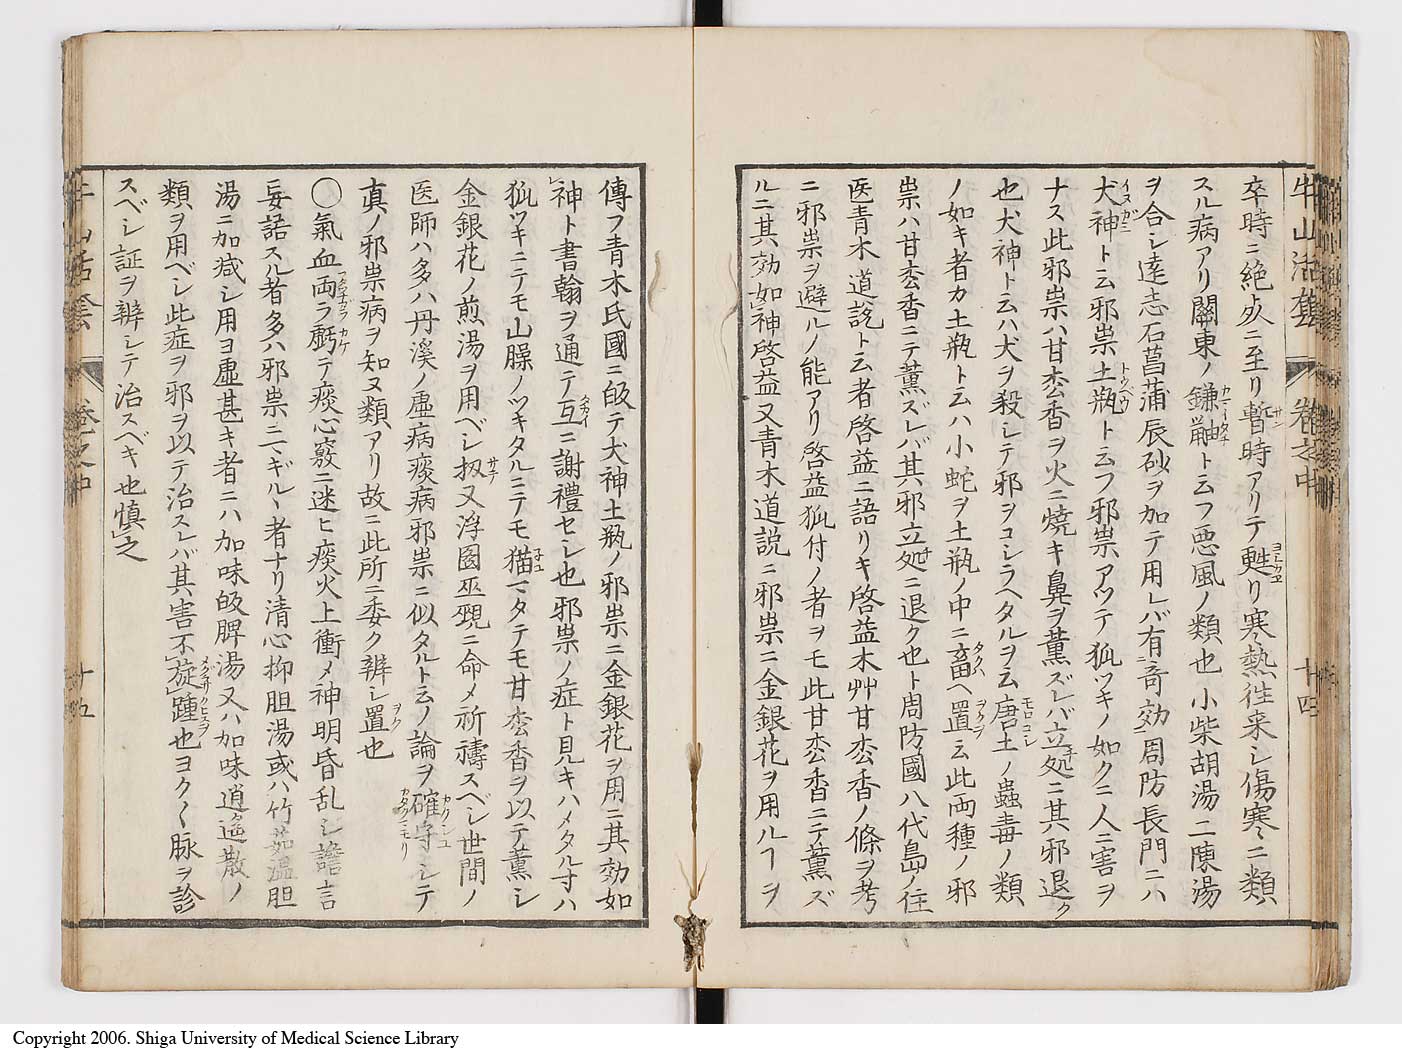 牛山活套 卷之中 十四
卒時ニ絶死ニ至リ暫時アリテ甦リ寒熱徃来シ傷寒ニ類
スル病アリ關東ノ鎌鼬ト云フ悪風ノ類也小柴胡湯二陳湯
ヲ合シ遠志石菖蒲辰砂ヲ加テ用レバ有奇効周防長門ニハ
犬神ト云邪祟土瓶ト云フ邪祟アツテ狐ツキノ如ク二人ニ害ヲ
ナス此邪祟ハ甘枩香ヲ火ニ燒キ鼻ヲ薫ズレバ立処ニ其邪退ク
也犬神ト云ハ犬ヲ殺シテ邪ヲコシラヘタルヲ云唐土ノ蟲毒ノ類
ノ如キ者カ土瓶ト云ハ小蛇ヲ土瓶ノ中ニ畜ヘ置云此両種ノ邪
祟ハ甘枩香ニテ薫ズレバ其邪立処ニ退ク也ト周防國八代島ノ住
医青木道説ト云者啓益ニ語リキ啓益木艸甘枩香ノ條ヲ考
ニ邪祟ヲ避ルノ能アリ啓益狐付ノ者ヲモ此甘枩香ニテ薫ズ
ルニ其効如神啓益又青木道説ニ邪祟ニ金銀花ヲ用ルヿヲ
傳フ青木氏國ニ皈テ犬神土瓶ノ邪祟ニ金銀花ヲ用ニ其効如
神ト書翰ヲ通テ互ニ謝禮セシ也邪祟ノ症ト見キハメタル寸ハ
狐ツキニテモ山臊ノツキタルニテモ猫マタテモ甘枩香ヲ以テ薫シ
金銀花ノ煎湯ヲ用ベシ扨又浮圖巫覡ニ命メ祈禱スベシ世間ノ
医師ハ多ハ丹溪ノ虚病痰病邪祟ニ似タルト云ノ論ヲ確守シテ
真ノ邪祟病ヲ知ヌ類アリ故ニ此所ニ委ク辨シ置也
〇氣血両ラ虧テ痰心竅ニ迷ヒ痰火上衝メ神明昏乱シ譫言
妄語スル者多ハ邪祟ニマギルヽ者ナリ清心抑胆湯或ハ竹茹温胆
湯ニ加减シ用ヨ虚甚キ者ニハ加味皈脾湯又ハ加味逍遙散ノ
類ヲ用ベシ此症ヲ邪ヲ以テ治スレバ其害不旋踵也ヨク〱脉ヲ診
スベシ証ヲ辨シテ治スベキ也慎之
卷之中 十五
Copyright 2006. Shiga University of Medical Science Library